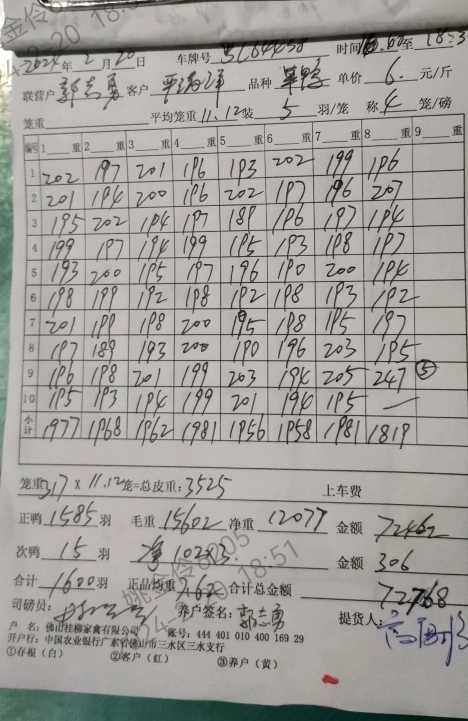 2024年2月20日 车牌号 时间
联营户 郭志勇 客户 品种 单价 6. 元/斤
笼重 平均笼重 11.12 装 5 羽/笼 称 4 笼/磅
编号 1 重 2 重 3 重 4 重 5 重 6 重 7 重 8 重 9 重
1 202 197 201 196 193 202 199 196
2 201 194 200 196 202 197 196 207
3 195 202 194 197 189 196 197 194
4 199 197 194 199 195 193 198 197
5 193 200 195 197 196 190 200 194
6 198 199 192 198 192 198 193 192
7 201 199 198 200 195 198 195 197
8 197 189 193 200 190 196 203 195
9 196 198 201 199 203 194 205 247 ⑤
10 195 193 194 199 201 194 195 —
小计 1977 1968 1962 1981 1956 1958 1981 1819
笼重 317 x 11.12 笼=总皮重: 3525 上车费
正鸭 1585 羽 毛重 15602 净重 12077 金额 72462
次鸭 15 羽 净 102 金额 306
合计 1600 羽 正品均重 7.62 合计总金额 72768
司磅员: 养户签名: 郭志勇 提货人:
户 名: 佛山桂柳家禽有限公司 账号: 444 401 010 400 169 29
开户行: 中国农业银行广东省佛山市三水区三水支行
①存根（白） ②客户（红） ③养户（黄）